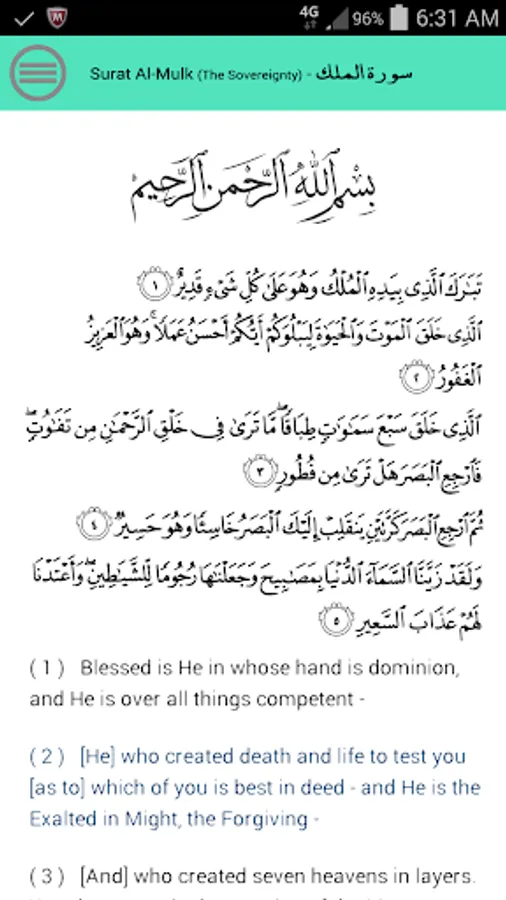 4G 96% 6:31 AM
Surat Al-Mulk (The Sovereignty) - سورة الملك
بِسْمِ اللَّهِ الرَّحْمَٰنِ الرَّحِيمِ
تَبَارَكَ الَّذِي بِيَدِهِ الْمُلْكُ وَهُوَ عَلَىٰ كُلِّ شَيْءٍ قَدِيرٌ ١
الَّذِي خَلَقَ الْمَوْتَ وَالْحَيَاةَ لِيَبْلُوَكُمْ أَيُّكُمْ أَحْسَنُ عَمَلًا ۚ وَهُوَ الْعَزِيزُ
الْغَفُورُ ٢
الَّذِي خَلَقَ سَبْعَ سَمَاوَاتٍ طِبَاقًا ۖ مَّا تَرَىٰ فِي خَلْقِ الرَّحْمَٰنِ مِن تَفَاوُتٍ ۖ
فَارْجِعِ الْبَصَرَ هَلْ تَرَىٰ مِن فُطُورٍ ٣
ثُمَّ ارْجِعِ الْبَصَرَ كَرَّتَيْنِ يَنقَلِبْ إِلَيْكَ الْبَصَرُ خَاسِئًا وَهُوَ حَسِيرٌ ٤
وَلَقَدْ زَيَّنَّا السَّمَاءَ الدُّنْيَا بِمَصَابِيحَ وَجَعَلْنَاهَا رُجُومًا لِّلشَّيَاطِينِ ۖ وَأَعْتَدْنَا
لَهُمْ عَذَابَ السَّعِيرِ ٥
( 1 ) Blessed is He in whose hand is dominion,
and He is over all things competent -
( 2 ) [He] who created death and life to test you
[as to] which of you is best in deed - and He is the
Exalted in Might, the Forgiving -
( 3 ) [And] who created seven heavens in layers.